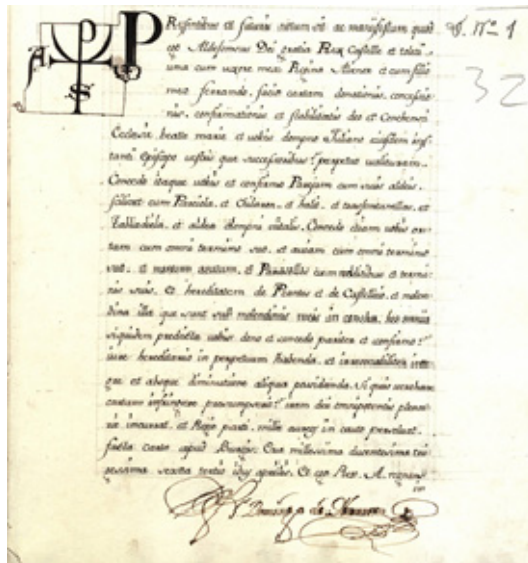 Presentibus et futuris notum sit ac manifestum quod
ego Aldefonsus Dei gratia Rex Castelle et Toleti
una cum uxore mea Regina Alienor et cum filio
meo ferrando, facio cartam donationis, concessio
nis, confirmationis et stabilitatis deo et Conchensi
Ecclesie beate marie et vobis dompno Juliano eiusdem ins
tanti Episcopo vestris que successoribus perpetuo valituram.
Concedo itaque vobis et confirmo Parejam cum suis aldeis,
scilicet cum Parziela, et Chilaron, et
Talliadiela, et aldea dompni vitalis, Concedo etiam vobis
cum omni termino suo, et cum omni termino
suo, et montem acutum, et Parasellis cum redditibus et termi
nis suis, Et hereditatem de et de Castellis, et molen
dina illa que sunt sub molendinis in concha, hec omnia
siquidem predicta vobis dono et concedo pariter et confirmo
iure hereditario in perpetuum habenda, et irrevocabiliter inte
gre et absque diminutione aliqua possidenda. Si quis vero hanc
cartam infringere presumpserit iram dei omnipotentis plena
rie incurrat, et Regie parti mille aureos in cauto persolvat.
facta carta apud Burgos, Era millesima ducentesima tri
gessima sexta tertio idus aprilis. Et ego Rex A. regnans
in
Domingo de
A
P
S
Nº 1
32